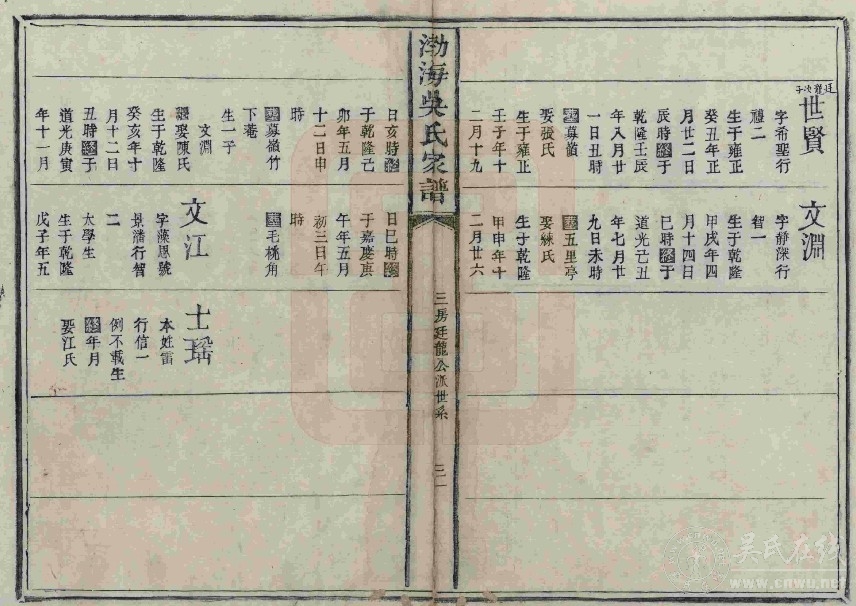 渤海吳氏家譜
三房廷龍公派世系
三一
廷龍次子
世賢
字希聖行
禮二
生于雍正
癸丑年正
月廿二日
辰時終于
乾隆壬辰
年八月廿
一日丑時
墓幕嶺
娶張氏
生于雍正
壬子年十
二月十九
日亥時終
于乾隆己
卯年五月
十二日申
時
墓幕嶺竹
下菴
生一子
文淵
繼娶陳氏
生于乾隆
癸亥年十
月十二日
丑時終于
道光庚寅
年十一月
文淵
字靜深行
智一
生于乾隆
甲戌年四
月十四日
巳時終于
道光己丑
年七月廿
九日未時
墓五里亭
娶練氏
生于乾隆
甲申年十
二月廿六
日巳時終
于嘉慶庚
午年五月
初三日午
時
墓毛桃角
文江
字藻鳳號
景潘行智
二
太學生
生于乾隆
戊子年五
士瑤
本姓雷
行信一
例不載生
終年月
娶江氏
吴氏在线
www.cnwu.net